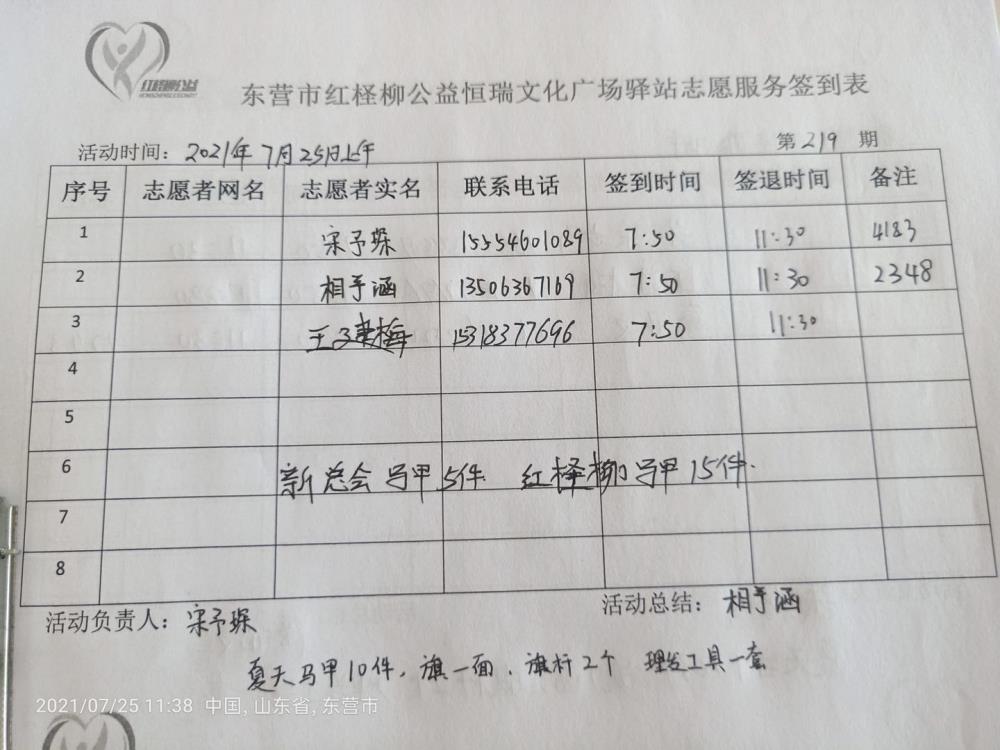 红柽柳公益
东营市红柽柳公益恒瑞文化广场驿站志愿服务签到表
活动时间：2021年7月25日上午 第219期
序号 志愿者网名 志愿者实名 联系电话 签到时间 签退时间 备注
1 宋予琛 15554601089 7:50 11:30 4183
2 相予涵 13506367169 7:50 11:30 2348
3 王建梅 15318377696 7:50 11:30
4
5
6 新总会马甲5件 红柽柳马甲15件.
7
8
活动负责人：宋予琛 活动总结：相予涵
夏天马甲10件，旗一面，旗杆2个 理发工具一套
2021/07/25 11:38 中国, 山东省, 东营市